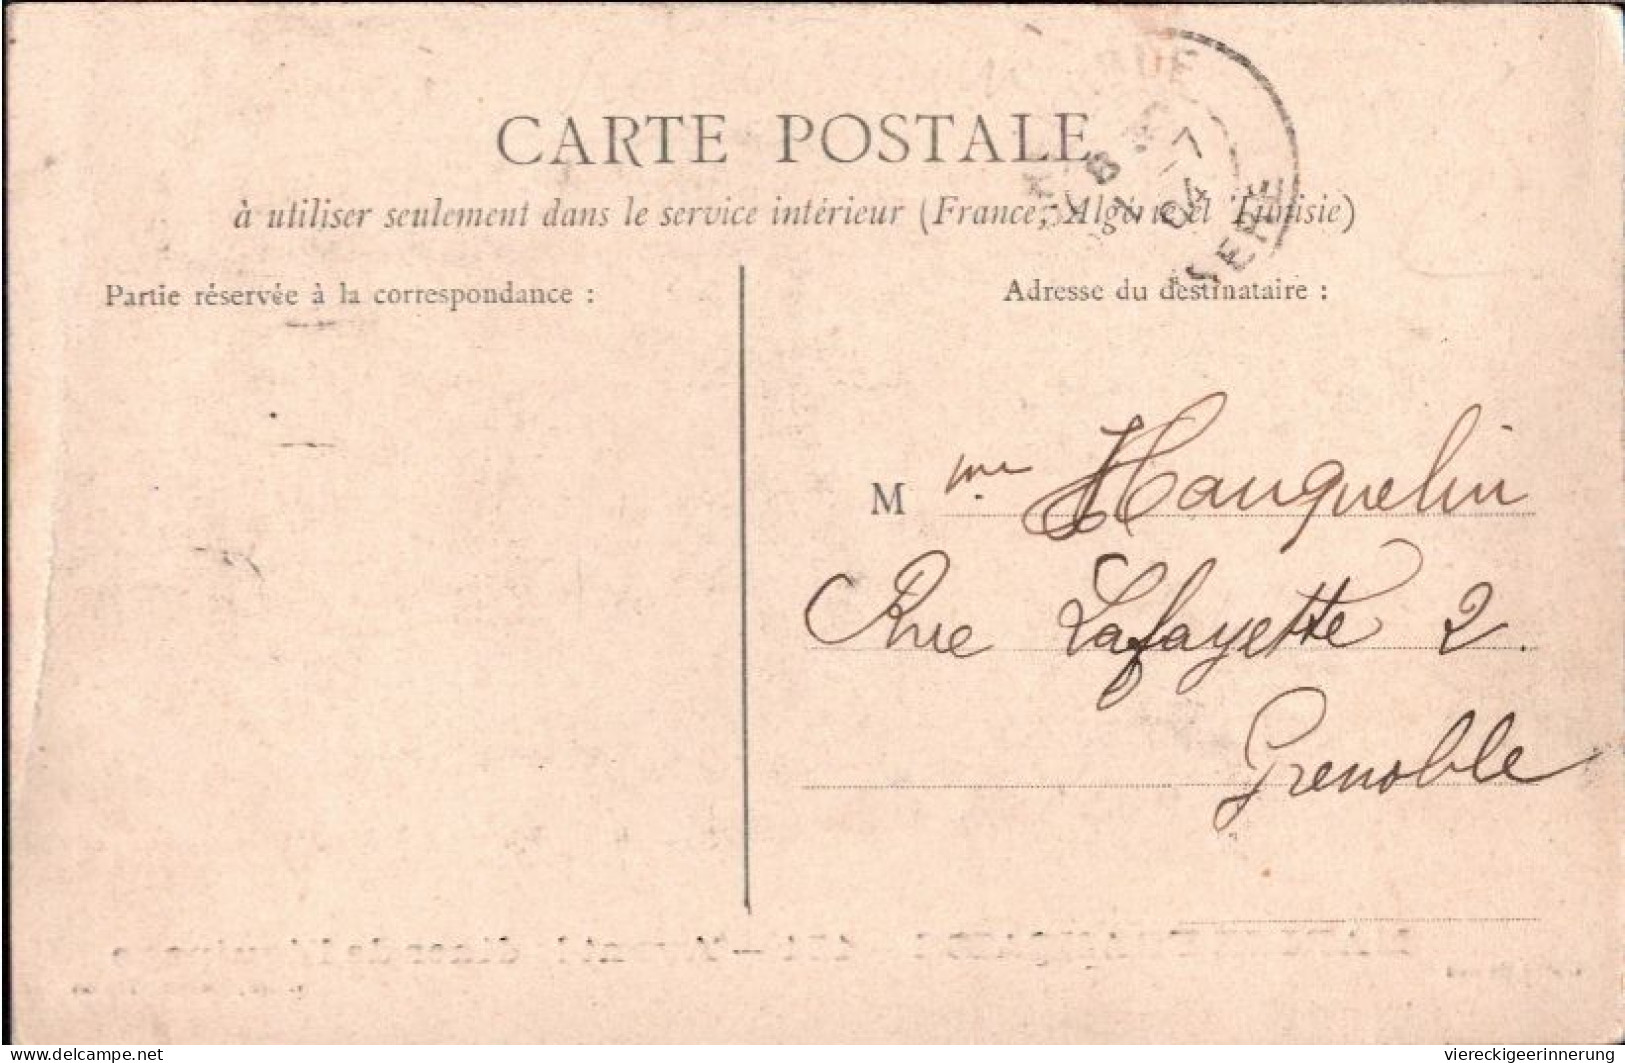 CARTE POSTALE
à utiliser seulement dans le service intérieur (France, Algérie et Tunisie)
Partie réservée à la correspondance :
Adresse du destinataire :
-7
04
ISERE
M me Hauquelin
Rue Lafayette 2.
Grenoble
viereckigeerinnerung
www.delcampe.net